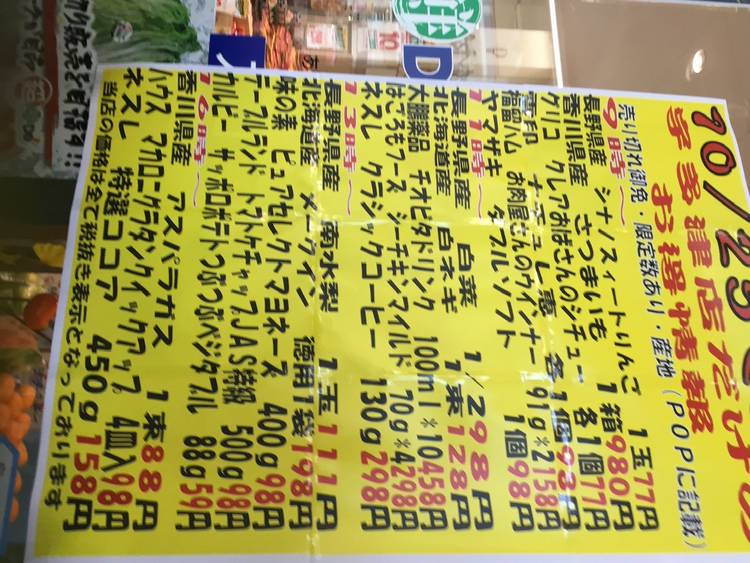 10/25
宇多津店だけの
お得情報
売り切れ御免・限定数あり・産地(POPに記載)
9時～
長野県産 シナノスイートりんご 1玉77円
香川県産 さつまいも 1箱980円
グリコ クレアおばさんのシチュー 各1個77円
雪印 ナチュレ恵 各1個98円
福留ハム お肉屋さんのウインナー 91g*2 158円
ヤマザキ ダブルソフト 1個98円
11時～
長野県産 白菜 1/2 98円
北海道産 白ネギ 1束128円
大鵬薬品 チオビタドリンク 100ml*10 458円
はごろもフーズ シーチキンマイルド 70g*4 298円
ネスレ クラシックコーヒー 130g 298円
13時～
長野県産 南水梨 1玉111円
北海道産 メークイン 徳用1袋198円
味の素 ピュアセレクトマヨネーズ 400g 98円
テーブルランド トマトケチャップJAS特級 500g 98円
カルビー サッポロポテトつぶつぶベジタブル 88g 59円
16時～
香川県産 アスパラガス 1束88円
ハウス マカロニグラタンクイックアップ 4皿入 98円
ネスレ 特選ココア 450g 158円
当店の価格は全て税抜き表示となっております